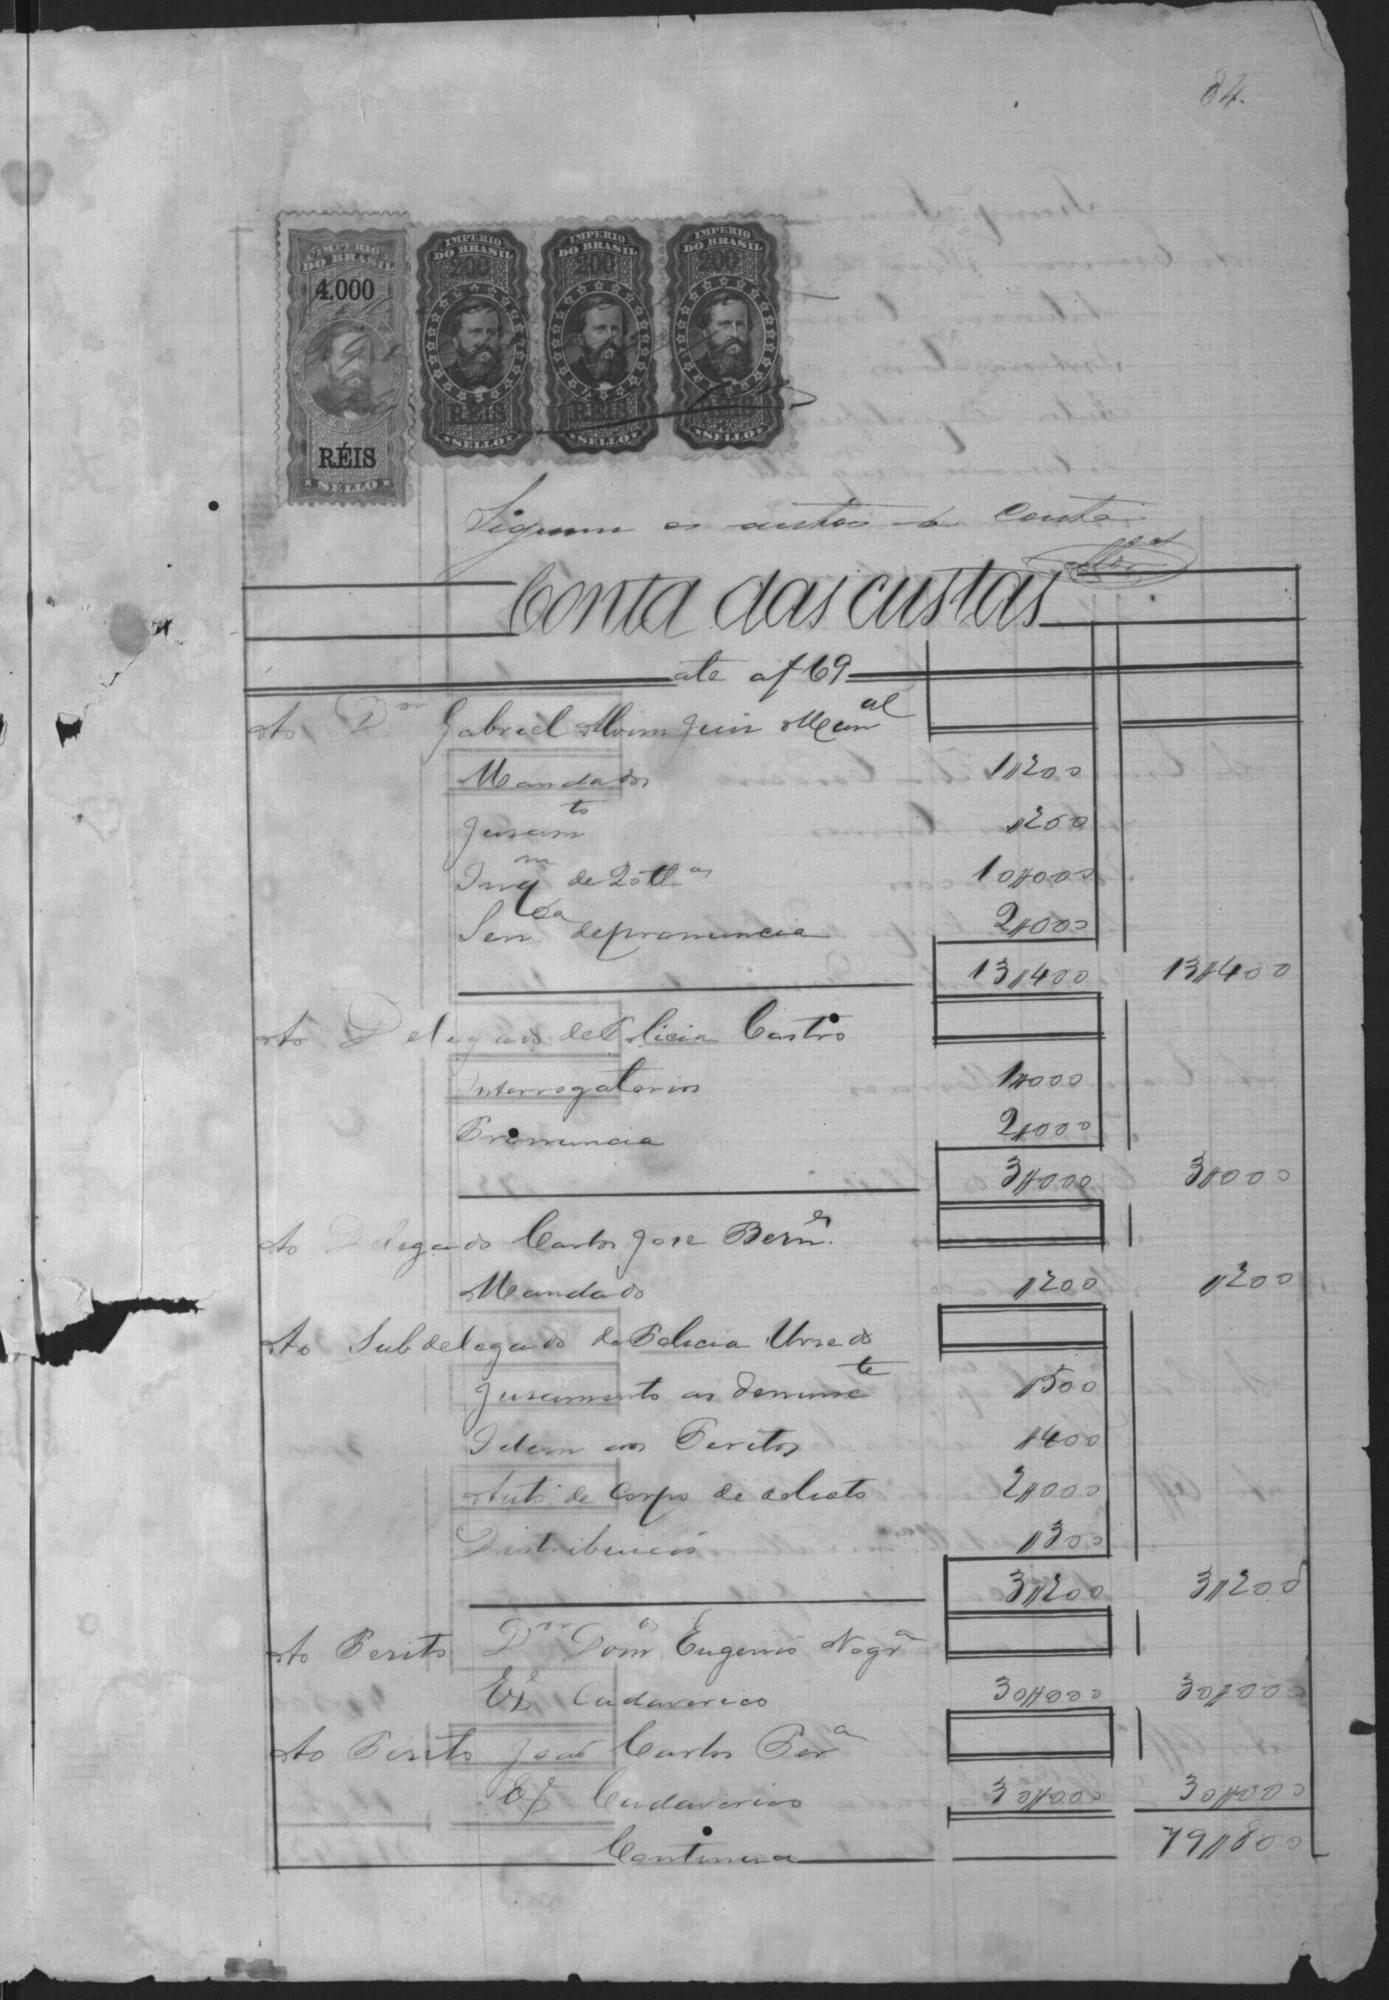 84.
IMPERIO DO BRASIL 4.000 RÉIS SELLO
IMPERIO DO BRASIL 200 RÉIS SELLO
IMPERIO DO BRASIL 200 RÉIS SELLO
IMPERIO DO BRASIL 200 RÉIS SELLO
os autos a conta
Conta das custas
ate af 69
Ao Dor Gabriel Alvim Juis Munal
Mandados 1$200
Juramto $200
Inqm de 20 tas 10$000
Senca de pronuncia 2$000
13$400 13$400
Ao Delegado de Policia Castro
Interrogatorios 1$000
Pronuncia 2$000
3$000 3$000
Ao Delegado Carlos Jose Berns
Mandado $200 $200
Ao Subdelegado de Policia
Juramento ao Denuncte $500
Idem aos Peritos $400
Auto de corpo de delicto 2$000
Distribuicão $300
3$200 3$200
Ao Perito Dor Domos Eugenio Nogra
Ex Cadaverico 30$000 30$000
Ao Perito João Carlos Pera
Ex Cadaverico 30$000 30$000
Continua 79$800